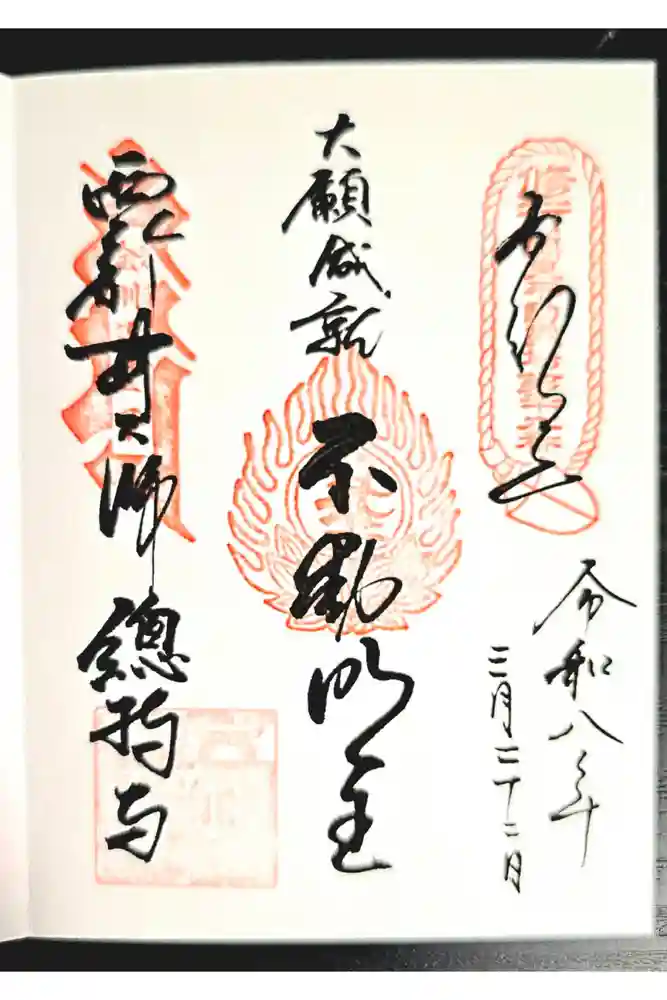 奉拝
令和八年
三月二十二日
大願成就
不動明王
西新井大師總持寺